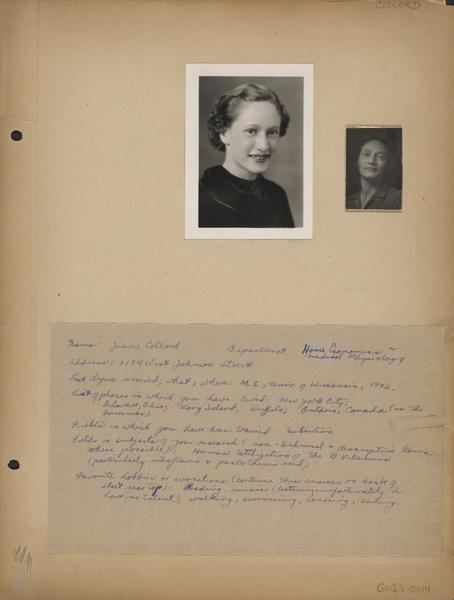 COLLORD
Name: Jean Collord Department: Home Economics &
Medical Physiology
Address: 1104 West Johnson Street
Last degree received; what, where: M.S., Univ of Wisconsin, 1942.
List of places in which you have lived: New York City,
Delaware, Ohio; Long Island, Buffalo; Ontario, Canada (in the
summer).
Fields in which you have been trained: Nutrition
Fields or subjects of your research (non-technical & descriptive terms
where possible): Human Utilization of the B Vitamins
(particularly riboflavin & pantothenic acid)
Favorite hobbies or avocations (continue this answer on back of
sheet nec ): Reading, music (listening, unfortunately I
have no talent), walking, swimming, canoeing, sewing.
GWIS-0014